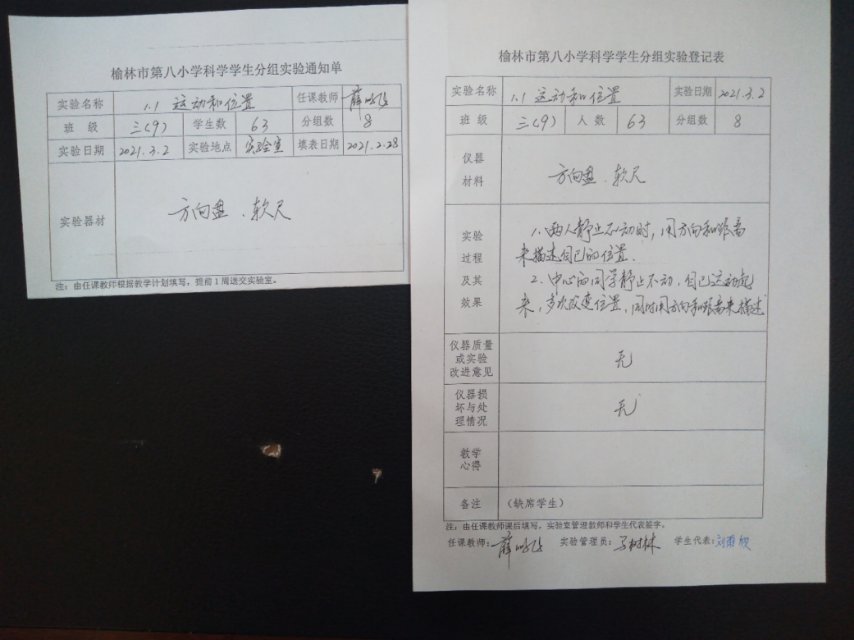 榆林市第八小学科学学生分组实验通知单
实验名称 1.1 运动和位置 任课教师
班级 三(9) 学生数 63 分组数 8
实验日期 2021.3.2 实验地点 实验室 填表日期 2021.2.28
实验器材 方向盘、软尺
注：由任课教师根据教学计划填写，提前1周送交实验室。
榆林市第八小学科学学生分组实验登记表
实验名称 1.1 运动和位置 实验日期 2021.3.2
班级 三(9) 人数 63 分组数 8
仪器材料 方向盘、软尺
实验过程及其效果
1.两人静止不动时，用方向和距离
来描述自己的位置.
2.中心的同学静止不动，自己运动起
来，多次改变位置，同时用方向和距离来描述
仪器质量或实验改进意见 无
仪器损坏与处理情况 无
教学心得
备注 (缺席学生)
注：由任课教师课后填写，实验室管理教师和学生代表签字。
任课教师: 实验管理员: 学生代表: